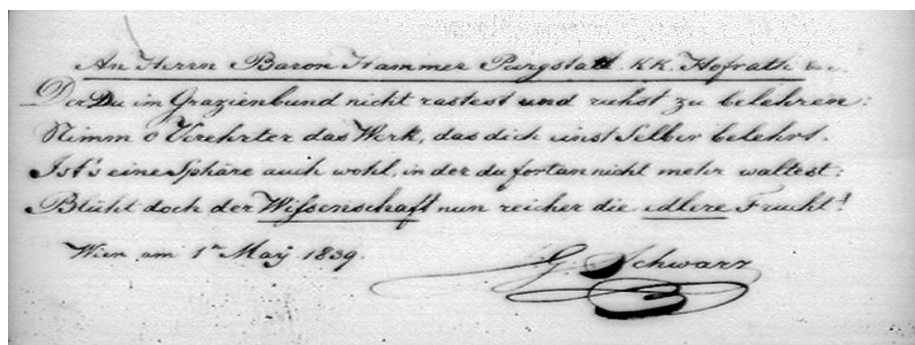 An Herrn Baron Hammer Purgstall KK. Hofrath
Der Du im Grazienbund nicht rastest und ruhst zu belehren:
Nimm o Verehrter das Werk, das dich einst Selber belehrt.
Ist's eine Sphäre auch wohl, in der du fortan nicht mehr waltest:
Blüht doch der Wißenschaft nun reicher die edlere Frucht!
Wien am 1n Maÿ 1839.
G. Schwarz